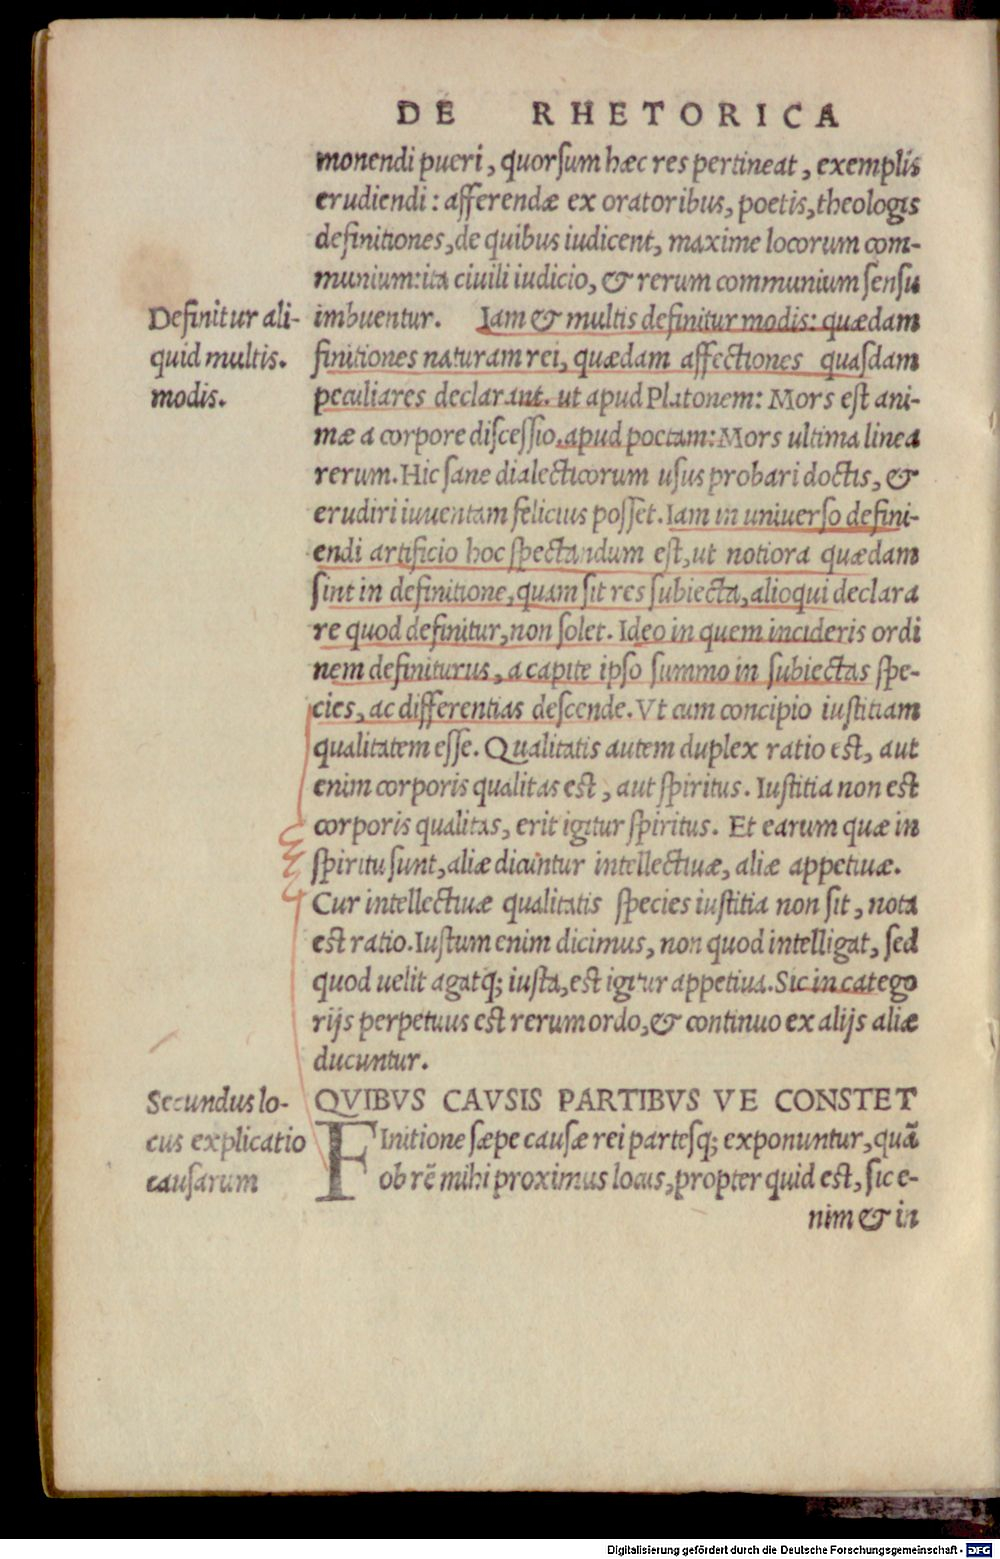 DE RHETORICA
monendi pueri, quorsum hæc res pertineat, exemplis
erudiendi: afferendæ ex oratoribus, poetis, theologis
definitiones, de quibus iudicent, maxime locorum com-
munium: ita ciuili iudicio, & rerum communium sensu
imbuentur. Iam & multis definitur modis: quædam
finitiones naturam rei, quædam affectiones quasdam
peculiares declarant. ut apud Platonem: Mors est ani-
mæ a corpore discessio. apud poetam: Mors ultima linea
rerum. Hic sane dialecticorum usus probari doctis, &
erudiri iuuentam felicius posset. Iam in uniuerso defini-
endi artificio hoc spectandum est, ut notiora quædam
sint in definitione, quam sit res subiecta, alioqui declara
re quod definitur, non solet. Ideo in quem incideris ordi
nem definiturus, a capite ipso summo in subiectas spe-
cies, ac differentias descende. Vt cum concipio iustitiam
qualitatem esse. Qualitatis autem duplex ratio est, aut
enim corporis qualitas est, aut spiritus. Iustitia non est
corporis qualitas, erit igitur spiritus. Et earum quæ in
spiritu sunt, aliæ dicuntur intellectiuæ, aliæ appetiuæ.
Cur intellectiuæ qualitatis species iustitia non sit, nota
est ratio. Iustum enim dicimus, non quod intelligat, sed
quod uelit agatq; iusta, est igitur appetiua. Sic in catego
rijs perpetuus est rerum ordo, & continuo ex alijs aliæ
ducuntur.
Definitur ali-
quid multis.
modis.
QVIBVS CAVSIS PARTIBVS VE CONSTET
FInitione sæpe causæ rei partesq; exponuntur, quã
ob rẽ mihi proximus locus, propter quid est, sic e-
nim & in
Secundus lo-
cus explicatio
causarum
Digitalisierung gefördert durch die Deutsche Forschungsgemeinschaft - DFG